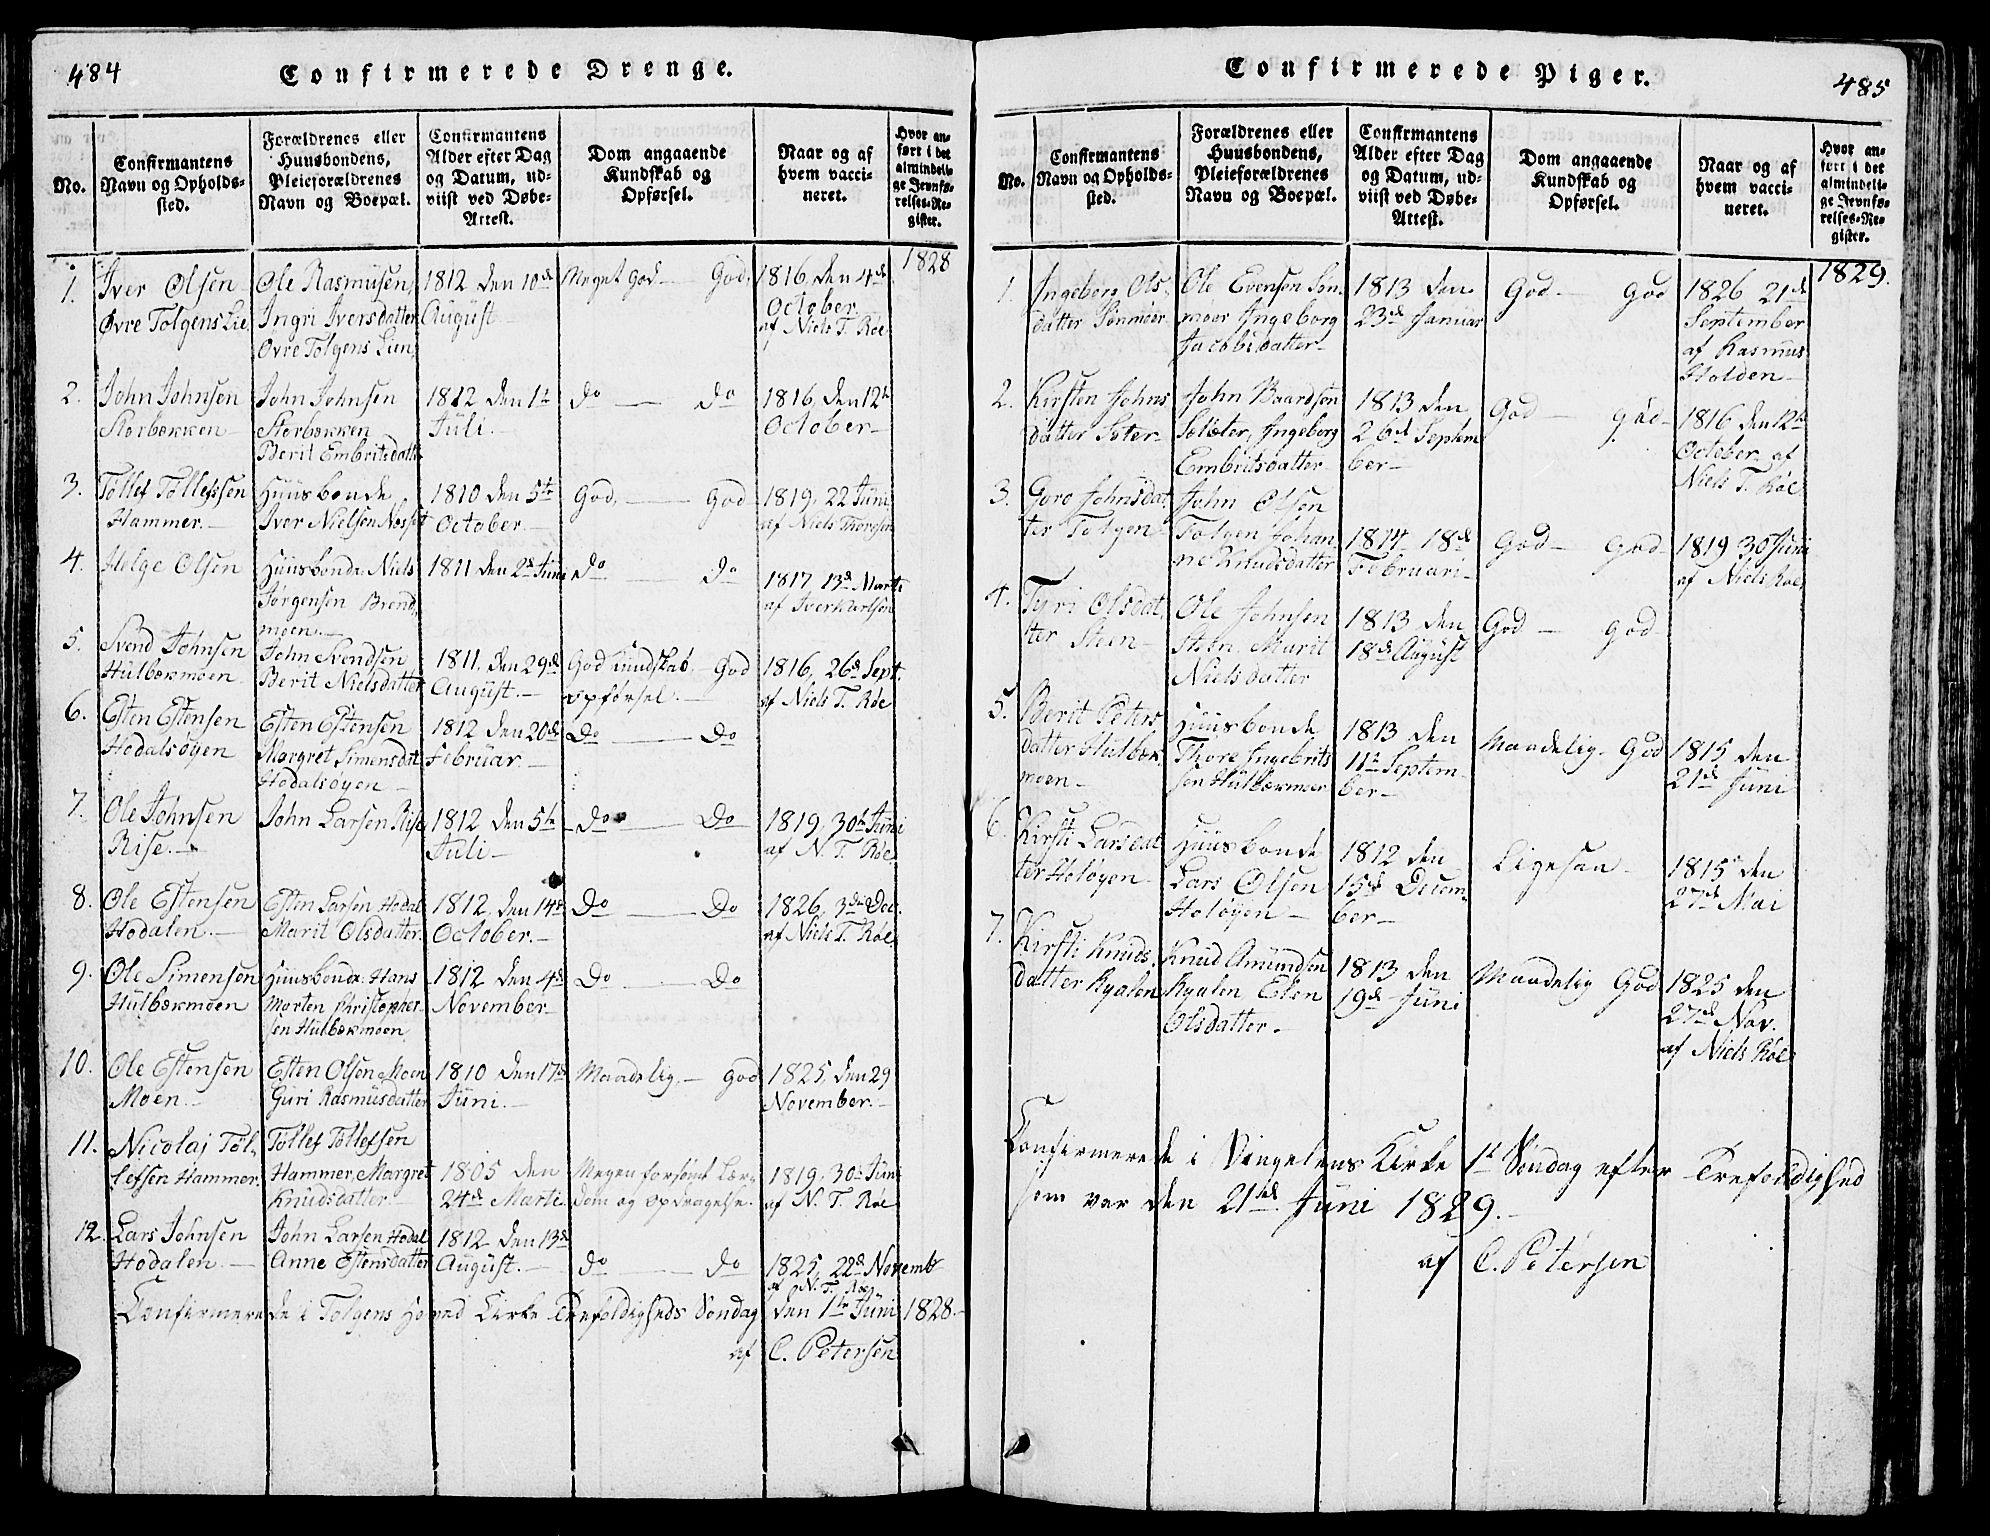 484
Confirmerede Drenge.
No.
Confirmantens
Navn og Opholds-
sted.
Forældrenes eller
Huusbondens,
Pleieforældrenes
Navn og Boepæl.
Confirmantens
Alder efter Dag
og Datum, ud-
viist ved Døbe-
Attest.
Dom angaaende
Kundskab og
Opførsel.
Naar og af
hvem vacci-
neret.
Hvor an-
ført i det
almindeli-
ge Jevnfø-
relses-Re-
gister.
1828
1.
Iver Olsen
Øvre Tolgens Lie
Ole Rasmusen,
Ingri Iversdatter
Øvre Tolgens
1812 den 10de
August
Meget God — God,
1816, den 4de
October
af Niels T. Røe
2.
John Johnsen
Storbækken
John Johnsen
Storbækken
Berit Embritsdatter
1812 den 1te
Juli.
do — do
1816, den 12te
October
3.
Tollef Tollefsen
Hammer.
Huusbonde
Iver Nielsen
1810 den 5te
October
God, — God
1819, 22 Juni
af Niels Thoresen
4.
Helge Olsen
Huusbonde Niels
Jørgensen Brend
moen.
1811 den 2de Juni
do do
1817 13de Marti
af Iver
5.
Svend Johnsen
Hulbækmoen
John Svendsen
Berit Nielsdatter
1811, den 29de
August.
God Kundskab God
opførsel.
1816, 26de Sept.
af Niels T. Røe
6.
Esten Estensen
Hodalsøyen
Esten Estensen
Margret Simensdat
Hodalsøyen
1812 den 20de
Februar.
Do — Do
7.
Ole Johnsen
Rise.
John Larsen Rise
1812, den 5te
Juli
Do — Do
1819, 30te Juni
af N. T. Røe
8.
Ole Estensen
Hodalen.
Esten Larsen Hodal
Marit Olsdatter
1812, den 14de
October.
Do — Do
1826, 3die Dec.
af Niels T. Røe
9.
Ole Simensen
Hulbækmoen
Huusbonde Hans
Morten Christopher
sen Hulbækmoen
1812 den 4de
November
Do Do
10.
Ole Estensen
Moen.
Esten Olsen Moen
Guri Rasmusdatter
1810 den 17de
Juni.
Maadelig, — God
1825, den 29
November.
11.
Nicolai Tol-
lefsen Hammer.
Tollef Tollefsen
Hammer, Margret
Knudsdatter
1805 den
24de Marti
Megen forsømt Lær-
dom og opdragelse.
1819, 30te Juni
af N. T. Røe
12.
Lars Johnsen
Hodalen.
John Larsen Hodal
Anne Estensdatter
1812 den 13de
August.
do — do
1825, 22de Novemb
af N. T. Røe
Confirmerede i Tolgens Hoved Kirke Trefoldigheds Søndag den 1te Juni 1828.
af C. Petersen
Confirmerede Piger.
485
No.
Confirmantens
Navn og Opholds-
sted.
Forældrenes eller
Huusbondens,
Pleieforældrenes
Navn og Boepæl.
Confirmantens
Alder efter Dag
og Datum, ud-
viist ved Døbe-
Attest.
Dom angaaende
Kundskab og
Opførsel.
Naar og af
hvem vacci-
neret.
Hvor an-
ført i det
almindeli-
ge Jevnfø-
relses-Re-
gister.
1829.
1.
Ingebor Ols,
datter Sønmoer
Ole Evensen Søn-
moer Ingeborg
Jacobsdatter
1813 den
23de Januar
God — God
1826 21de
September
af Rasmus
Holden
2.
Kirsten Johns
datter Seter
John Baardsen
Ingeborg
Embritsdatter
1813 den
26de Septem
ber
God — god
1816 den 12te
October af
Niels T. Røe
3.
Goro Johnsdat
ter Tolgen
John Olsen
Tolgen Johan
ne Knudsdatter
1814 18de
Februari
God — god
1819 30 Juni
af Niels Røe
4.
Tyri Olsdat
ter Steen
Ole Johnsen
Steen Marit
Nielsdatter
1813 den
18de August
God — god
5.
Berit Peters
datter Hulbæk
moen
Huusbonde
Thore Ingebrits
sen Hulbækmoen
1813 den
11te Septem-
ber
Maadelig. God
1815 den
21de Juni
6.
Kirsti Larsdat
ter Holøyen
Huusbonde
Lars Olsen
Holøyen
1812 den
15de Decem-
ber
Ligesaa
1815 den
27de Mai
7.
Kirsti Knuds
datter Ryalen
Knud Amundsen
Ryalen Elen
Olsdatter.
1813 den
19de Juni
Maadelig God
1825 den
27de Nov.
af Niels Røe
Confirmerede i Vingelens Kirke 1te Søndag efter Trefoldighed
som var den 21de Juni 1829.
af C. Petersen